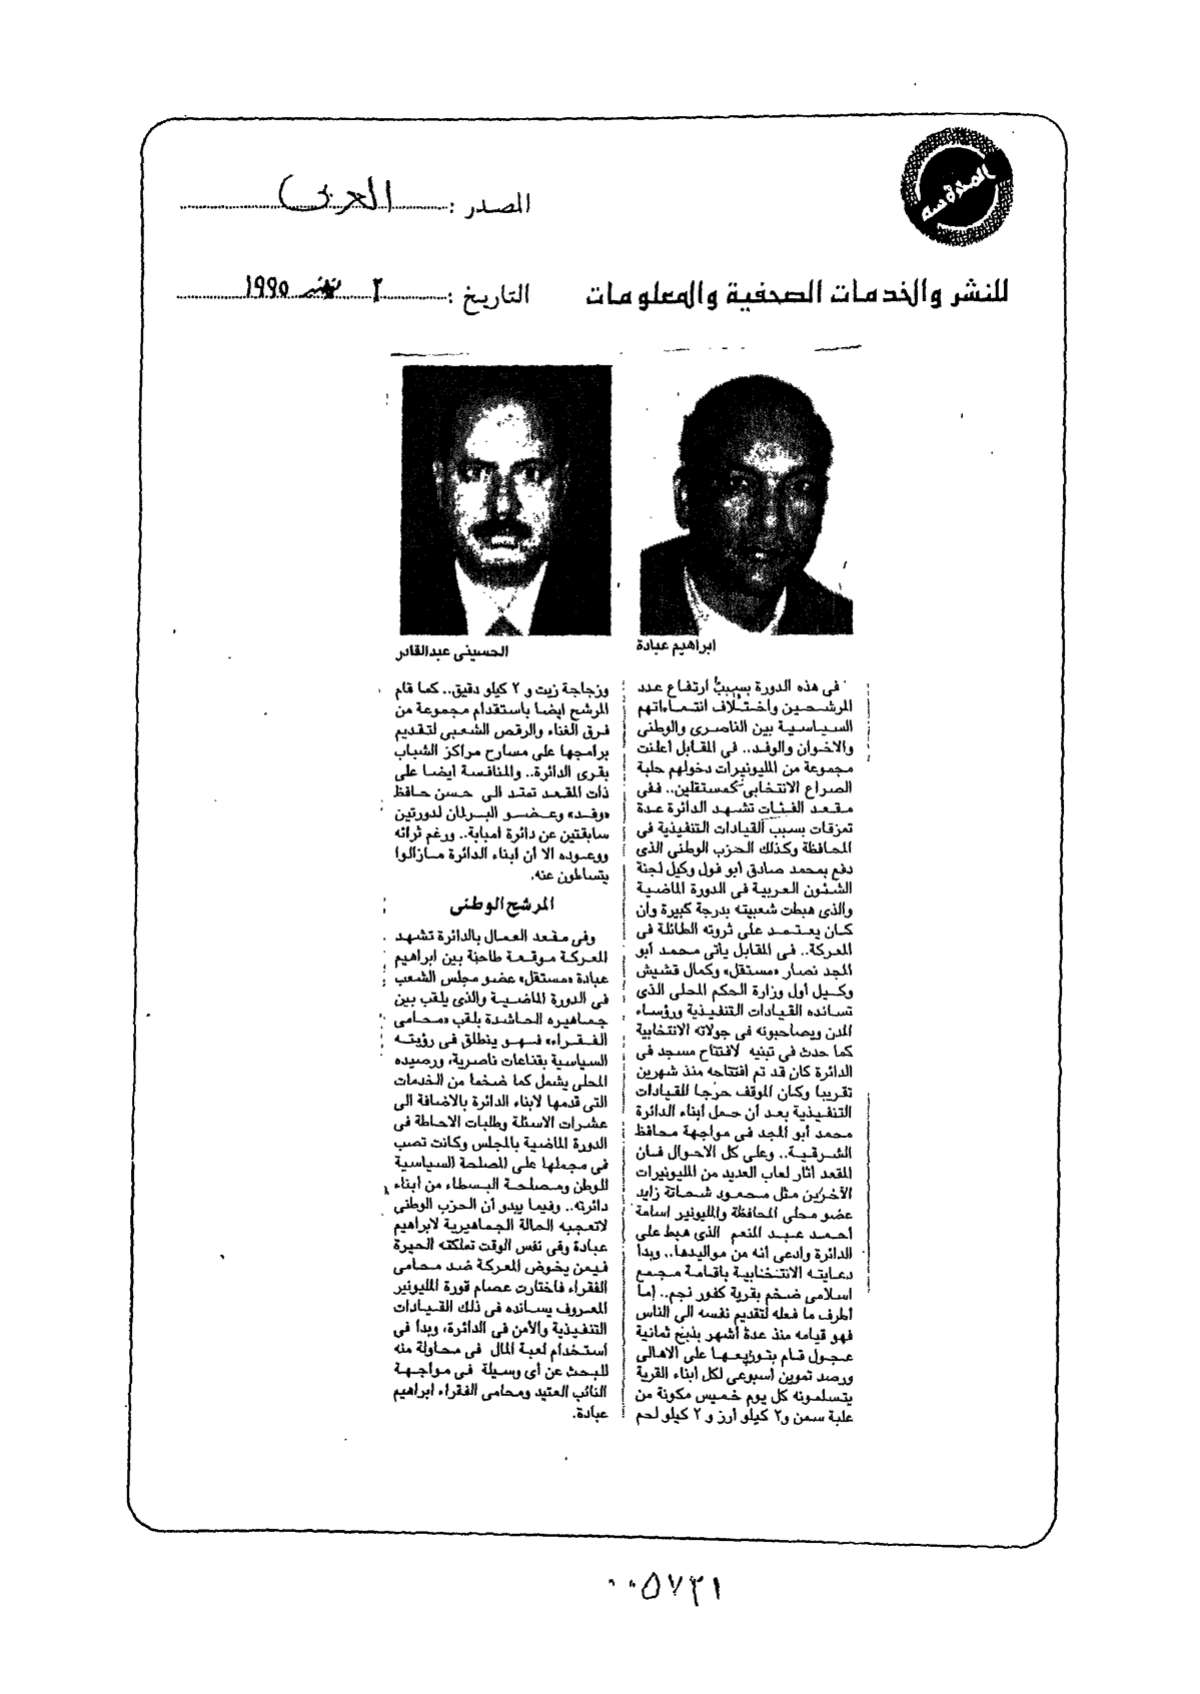 المصدر : العربى
للنشر والخدمات الصحفية والمعلومات
التاريخ : ٢ نوفمبر ١٩٩٥
ابراهيم عبادة
الحسينى عبدالقادر
فى هذه الدورة بسبب ارتفاع عدد
المرشحين واختلاف انتماءاتهم
السياسية بين الناصرى والوطنى
والاخوان والوفد.. فى المقابل أعلنت
مجموعة من المليونيرات دخولهم حلبة
الصراع الانتخابى كمستقلين.. ففى
مقعد الفئات تشهد الدائرة عدة
تمزقات بسبب القيادات التنفيذية فى
المحافظة وكذلك الحزب الوطنى الذى
دفع بمحمد صادق أبو فول وكيل لجنة
الشئون العربية فى الدورة الماضية
والذى هبطت شعبيته بدرجة كبيرة وان
كان يعتمد على ثروته الطائلة فى
المعركة.. فى المقابل يأتى محمد أبو
المجد نصار «مستقل» وكمال قشيش
وكيل أول وزارة الحكم المحلى الذى
تسانده القيادات التنفيذية ورؤساء
المدن ويصاحبونه فى جولاته الانتخابية
كما حدث فى تبنيه لافتتاح مسجد فى
الدائرة كان قد تم افتتاحه منذ شهرين
تقريبا وكان الموقف حرجا للقيادات
التنفيذية بعد أن حمل أبناء الدائرة
محمد أبو المجد فى مواجهة محافظ
الشرقية.. وعلى كل الاحوال فان
المقعد أثار لعاب العديد من المليونيرات
الآخرين مثل محمود شحاتة زايد
عضو محلى المحافظة والمليونير اسامة
أحمد عبد المنعم الذى هبط على
الدائرة وادعى أنه من مواليدها.. وبدأ
دعايته الانتخابية باقامة مجمع
اسلامى ضخم بقرية كفور نجم.. إما
أطرف ما فعله لتقديم نفسه الى الناس
فهو قيامه منذ عدة أشهر بذبح ثمانية
عجول قام بتوزيعها على الاهالى
ورصد تموين أسبوعى لكل أبناء القرية
يتسلمونه كل يوم خميس مكونة من
علبة سمن و٢ كيلو أرز و ٢ كيلو لحم
وزجاجة زيت و ٢ كيلو دقيق.. كما قام
المرشح ايضا باستقدام مجموعة من
فرق الغناء والرقص الشعبى لتقديم
برامجها على مسارح مراكز الشباب
بقرى الدائرة.. والمنافسة ايضا على
ذات المقعد تمتد الى حسن حافظ
«وفد» وعضو البرلمان لدورتين
سابقتين عن دائرة امبابة.. ورغم ثرائه
ووعوده الا أن ابناء الدائرة مازالوا
يتساءلون عنه.
المرشح الوطنى
وفى مقعد العمال بالدائرة تشهد
المعركة موقعة طاحنة بين ابراهيم
عبادة «مستقل» عضو مجلس الشعب
فى الدورة الماضية والذى يلقب بين
جماهيره الحاشدة بلقب «محامى
الفقراء» فهو ينطلق فى رؤيته
السياسية بقناعات ناصرية، ورصيده
المحلى يشمل كما ضخما من الخدمات
التى قدمها لابناء الدائرة بالاضافة الى
عشرات الاسئلة وطلبات الاحاطة فى
الدورة الماضية بالمجلس وكانت تصب
فى مجملها على المصلحة السياسية
للوطن ومصلحة البسطاء من أبناء
دائرته.. وفيما يبدو أن الحزب الوطنى
لاتعجبه الحالة الجماهيرية لابراهيم
عبادة وفى نفس الوقت تملكته الحيرة
فيمن يخوض المعركة ضد محامى
الفقراء فاختارت عصام قورة المليونير
المعروف يسانده فى ذلك القيادات
التنفيذية والأمن فى الدائرة، وبدأ فى
أستخدام لعبة المال فى محاولة منه
للبحث عن أى وسيلة فى مواجهة
النائب العتيد ومحامى الفقراء ابراهيم
عبادة.
٠٠٥٧٣١